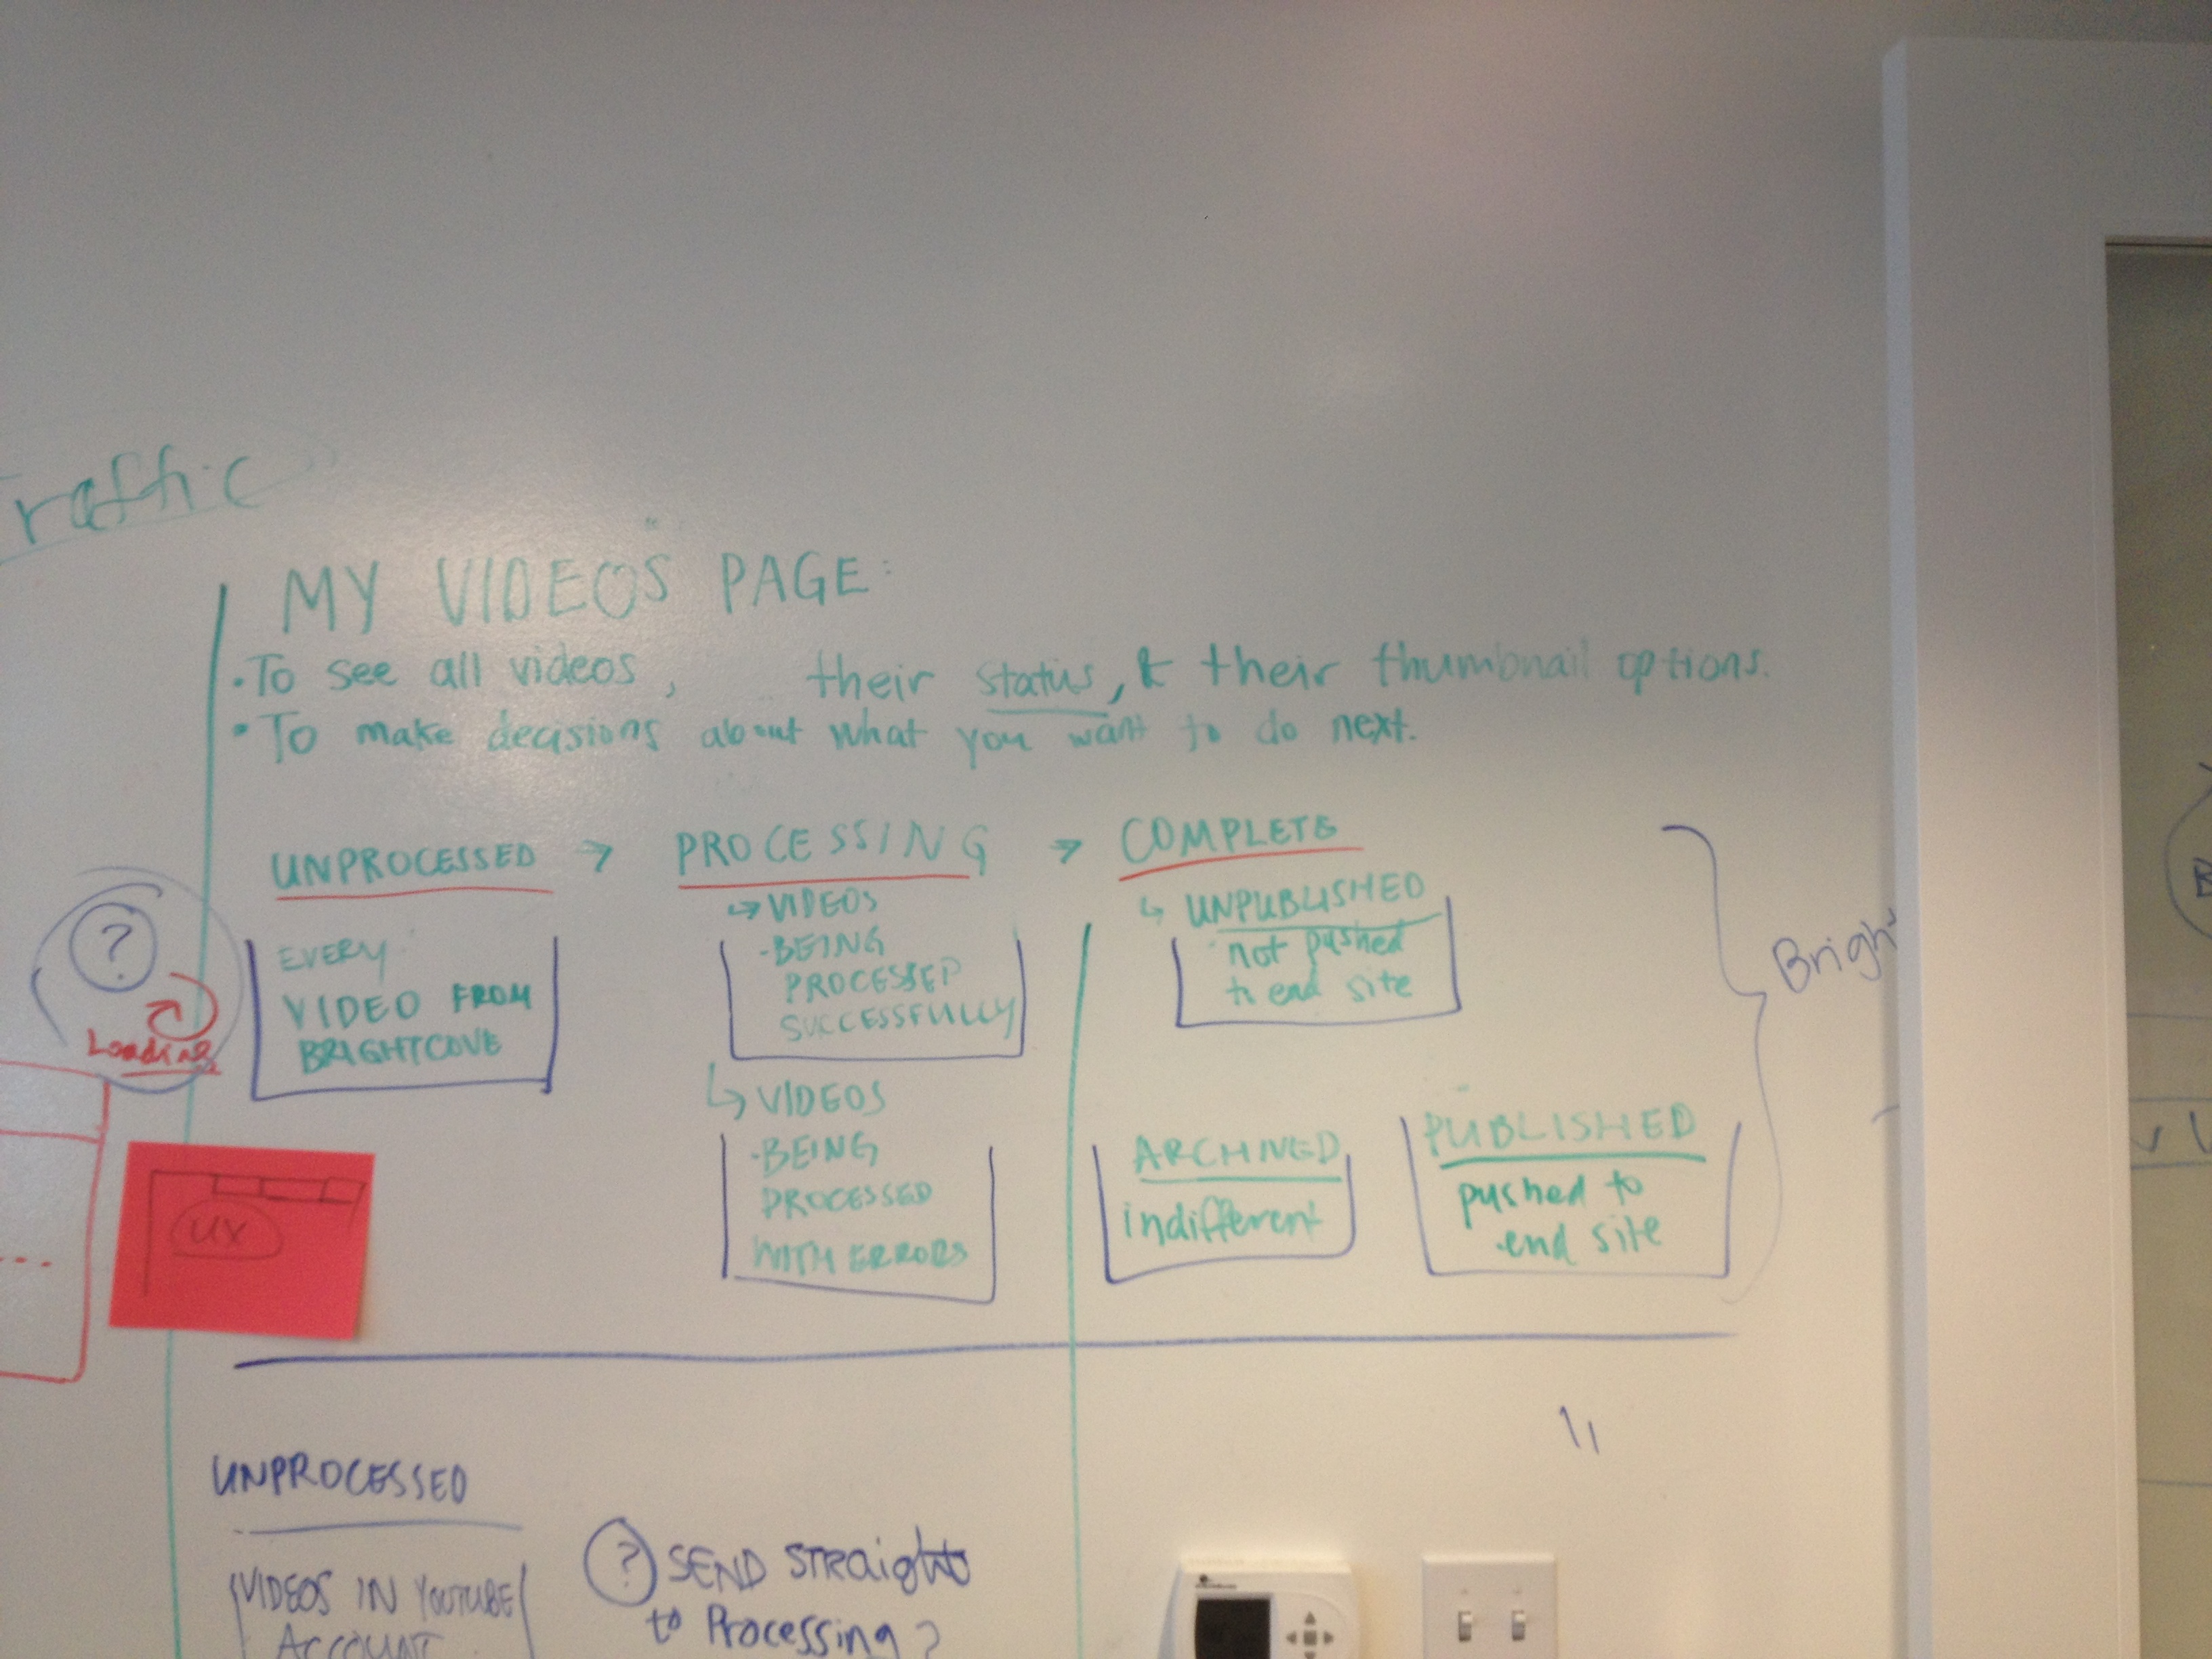 raffic
MY VIDEOS PAGE:
· To see all videos, their status, & their thumbnail options.
· To make decisions about what you want to do next.
UNPROCESSED → PROCESSING → COMPLETE
?
Loading
EVERY
VIDEO FROM
BRIGHTCOVE
↳ VIDEOS
-BEING
PROCESSED
SUCCESSFULLY
↳ VIDEOS
-BEING
PROCESSED
WITH ERRORS
↳ UNPUBLISHED
not pushed
to end site
ARCHIVED
indifferent
PUBLISHED
pushed to
end site
Bright
B
UX
UNPROCESSED
VIDEOS IN YOUTUBE
ACCOUNT
? SEND STRaight
to Processing?